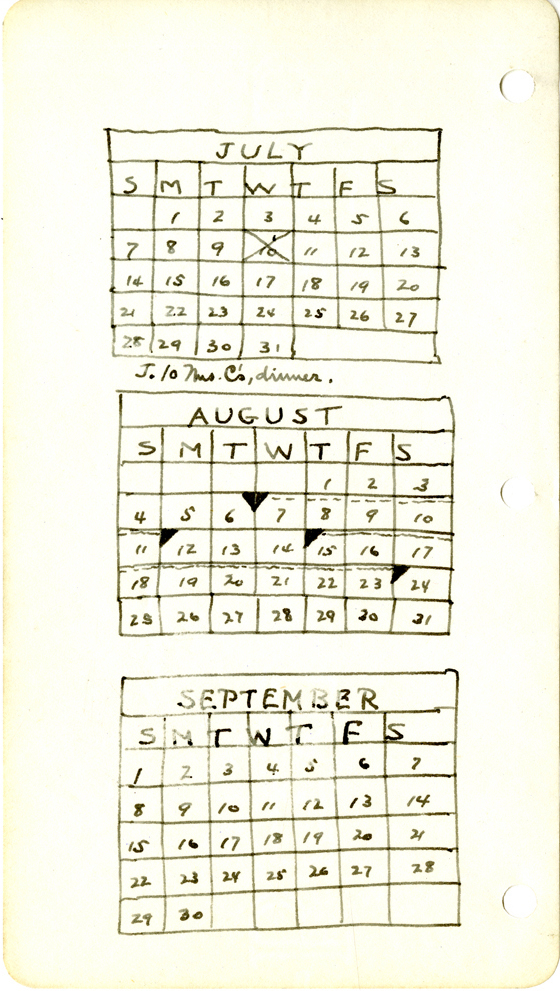 JULY
S M T W T F S
1 2 3 4 5 6
7 8 9 10 11 12 13
14 15 16 17 18 19 20
21 22 23 24 25 26 27
28 29 30 31
J. 10 Mrs. C's, dinner.
AUGUST
S M T W T F S
1 2 3
4 5 6 7 8 9 10
11 12 13 14 15 16 17
18 19 20 21 22 23 24
25 26 27 28 29 30 31
SEPTEMBER
S M T W T F S
1 2 3 4 5 6 7
8 9 10 11 12 13 14
15 16 17 18 19 20 21
22 23 24 25 26 27 28
29 30